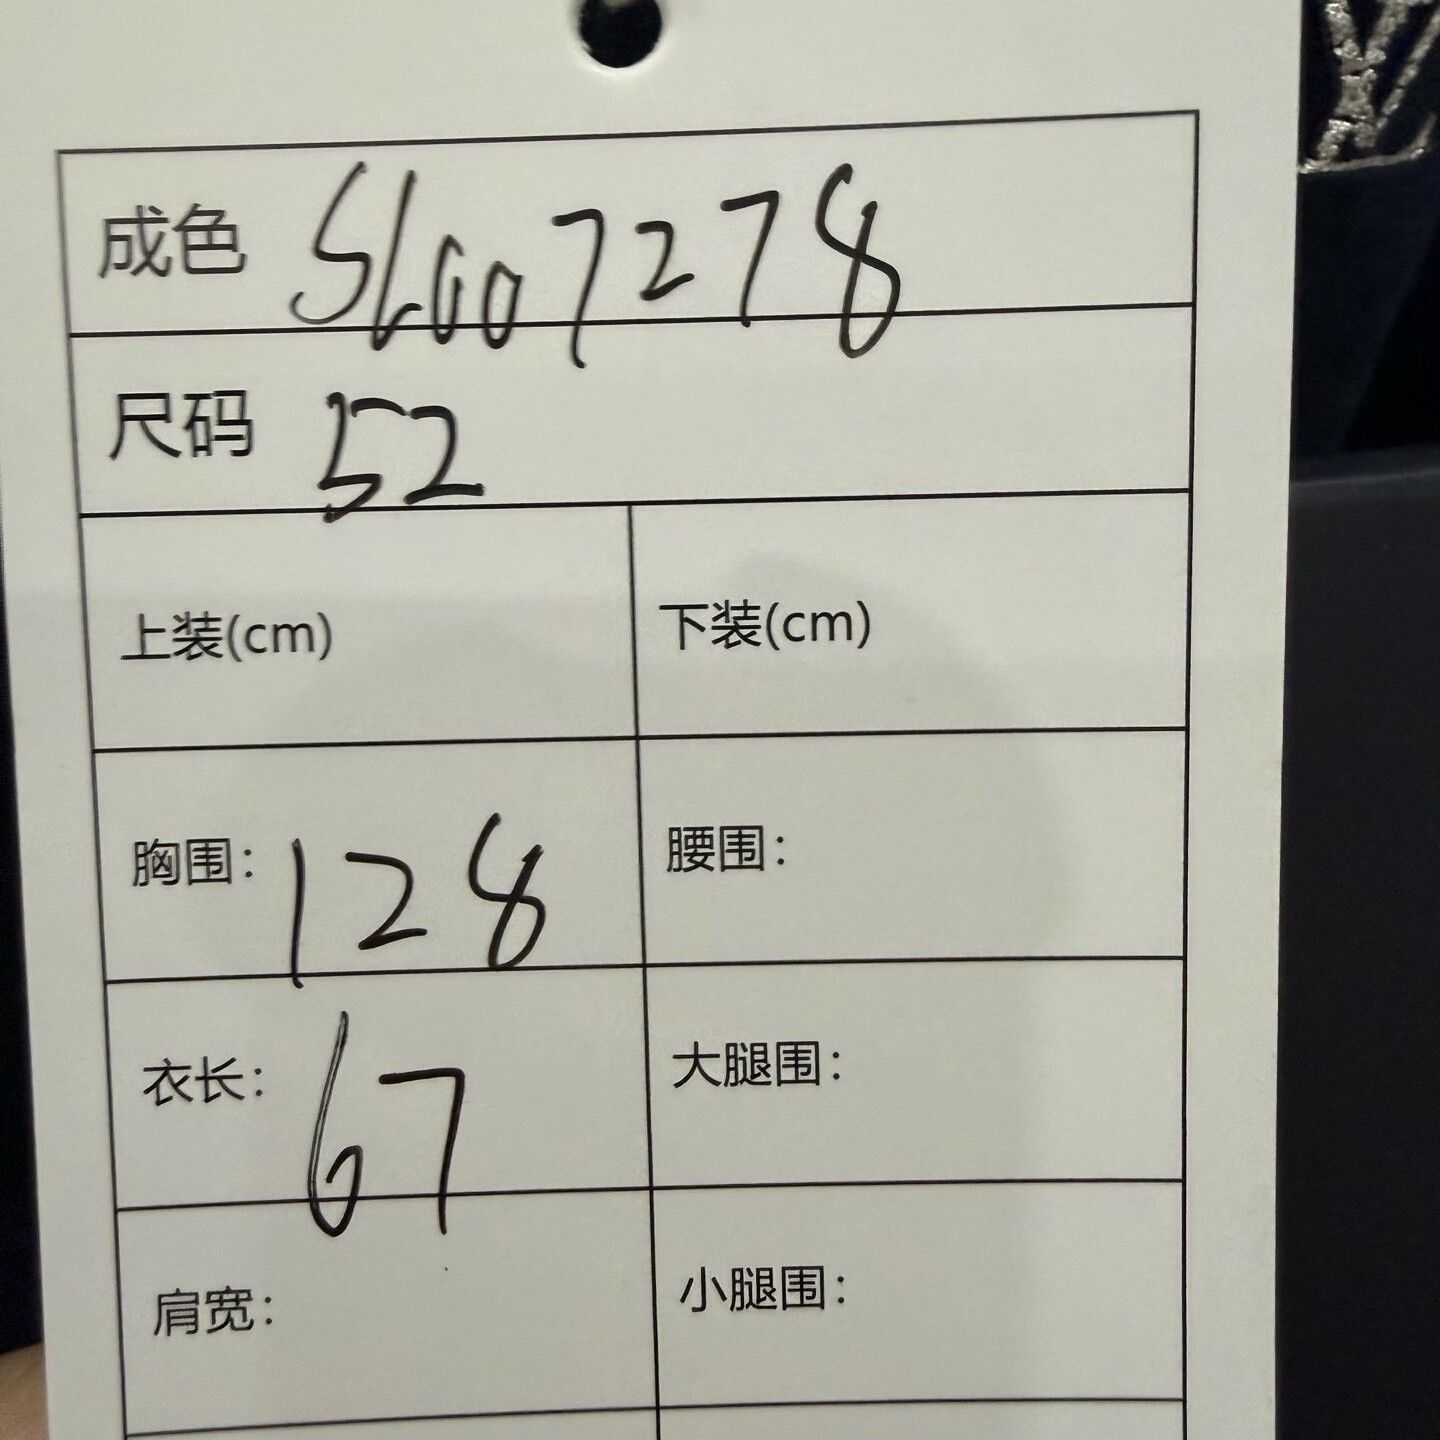 成色 SL007278
尺码 52
上装(cm) 下装(cm)
胸围: 128 腰围:
衣长: 67 大腿围:
肩宽: 小腿围: